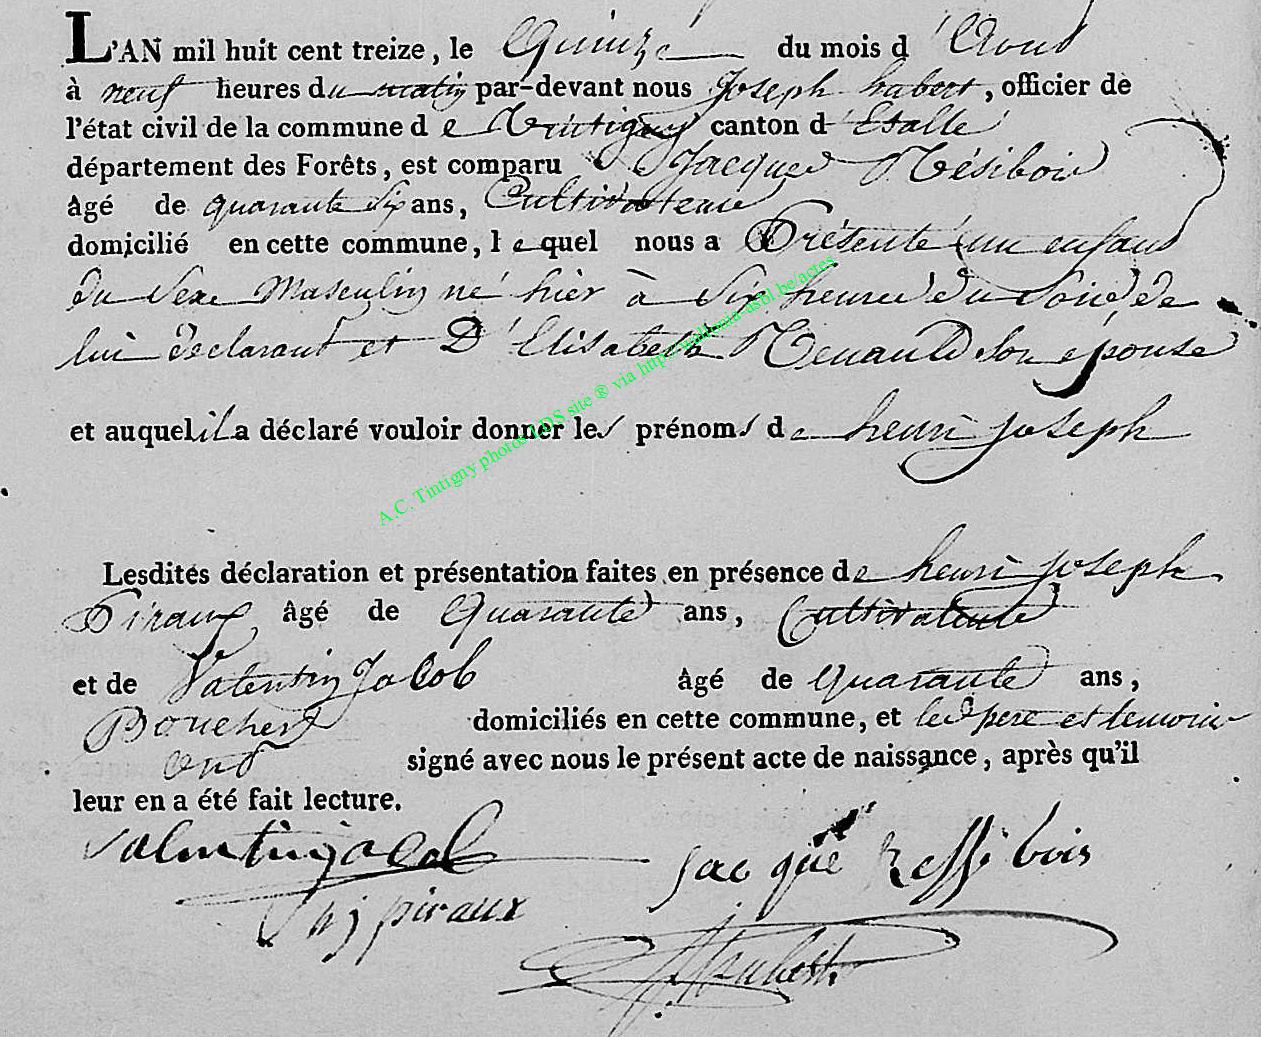 L'AN mil huit cent treize, le Quinze du mois d'Aout
à neuf heures du matin par-devant nous Joseph habert, officier de
l'état civil de la commune de Tintigny canton d'Etalle
département des Forêts, est comparu Jacques Résibois
âgé de quarante Six ans, Cultivateur
domicilié en cette commune, lequel nous a Présenté un enfant
du Sexe Masculin né hier à Six heures du Soir de
lui declarant et D'Elisabeth Renauld son épouse
et auquel il a déclaré vouloir donner les prénoms de henri joseph
A.C. Tintigny photos LDS site ® via http://wallonia-asbl.be/actes
Lesdites déclaration et présentation faites en présence de henri joseph
Piraux âgé de Quarante ans, Cultivateur
et de Valentin Jacob âgé de Quarante ans,
domiciliés en cette commune, et les pere et temoins
ont signé avec nous le présent acte de naissance, après qu'il
leur en a été fait lecture.
valentin jacob jacque Ressibois
h j piraux